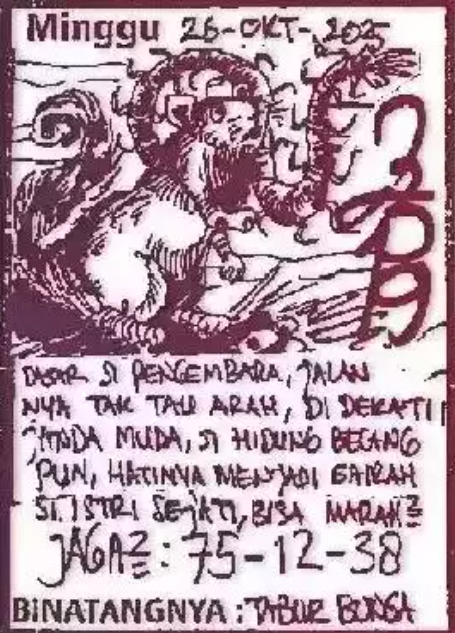 Minggu 26-OKT-2025
DASAR SI PENGEMBARA, JALAN
NYA TAK TAU ARAH, DI DEKATI
JANDA MUDA, SI HIDUNG BELANG
PUN, HATINYA MENJADI GAIRAH
SI ISTRI SEJATI, BISA MARAH²
JAGA²: 75-12-38
BINATANGNYA: TABUR BUNGA